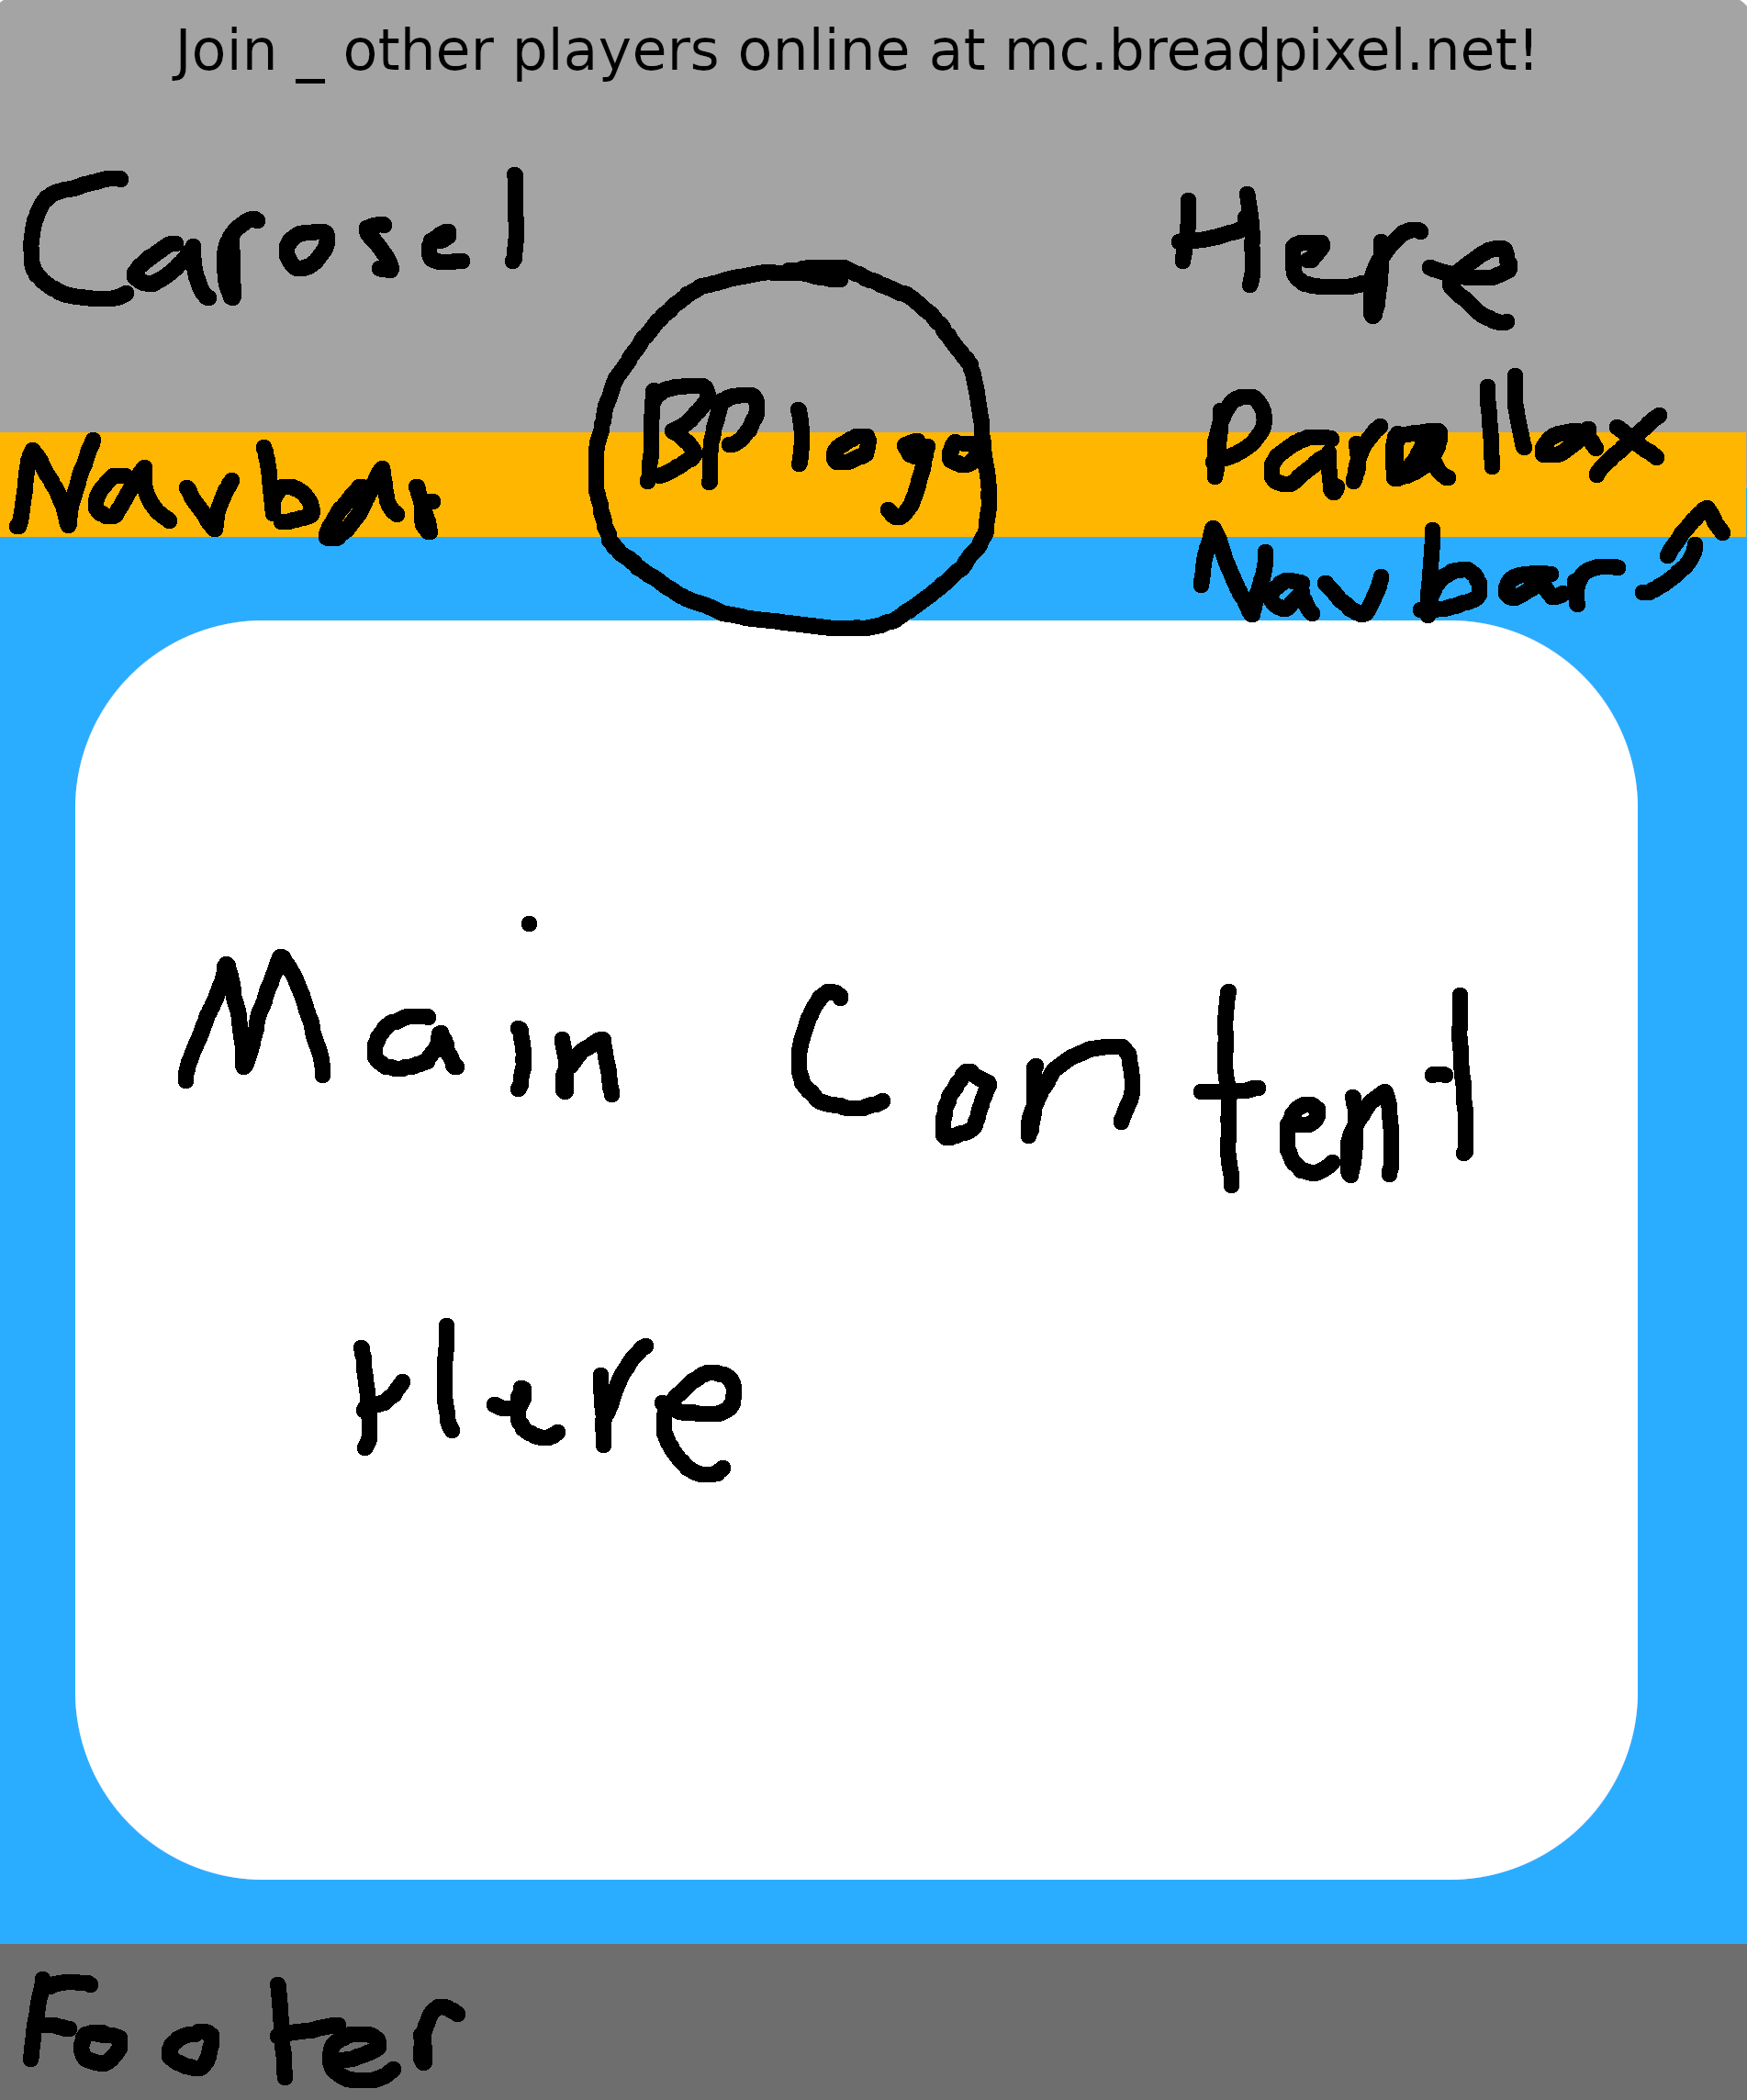 Join _ other players online at mc.breadpixel.net!
Carosel Here
BP logo
Navbar
Parallax
Navbar
Main Content
Here
Footer